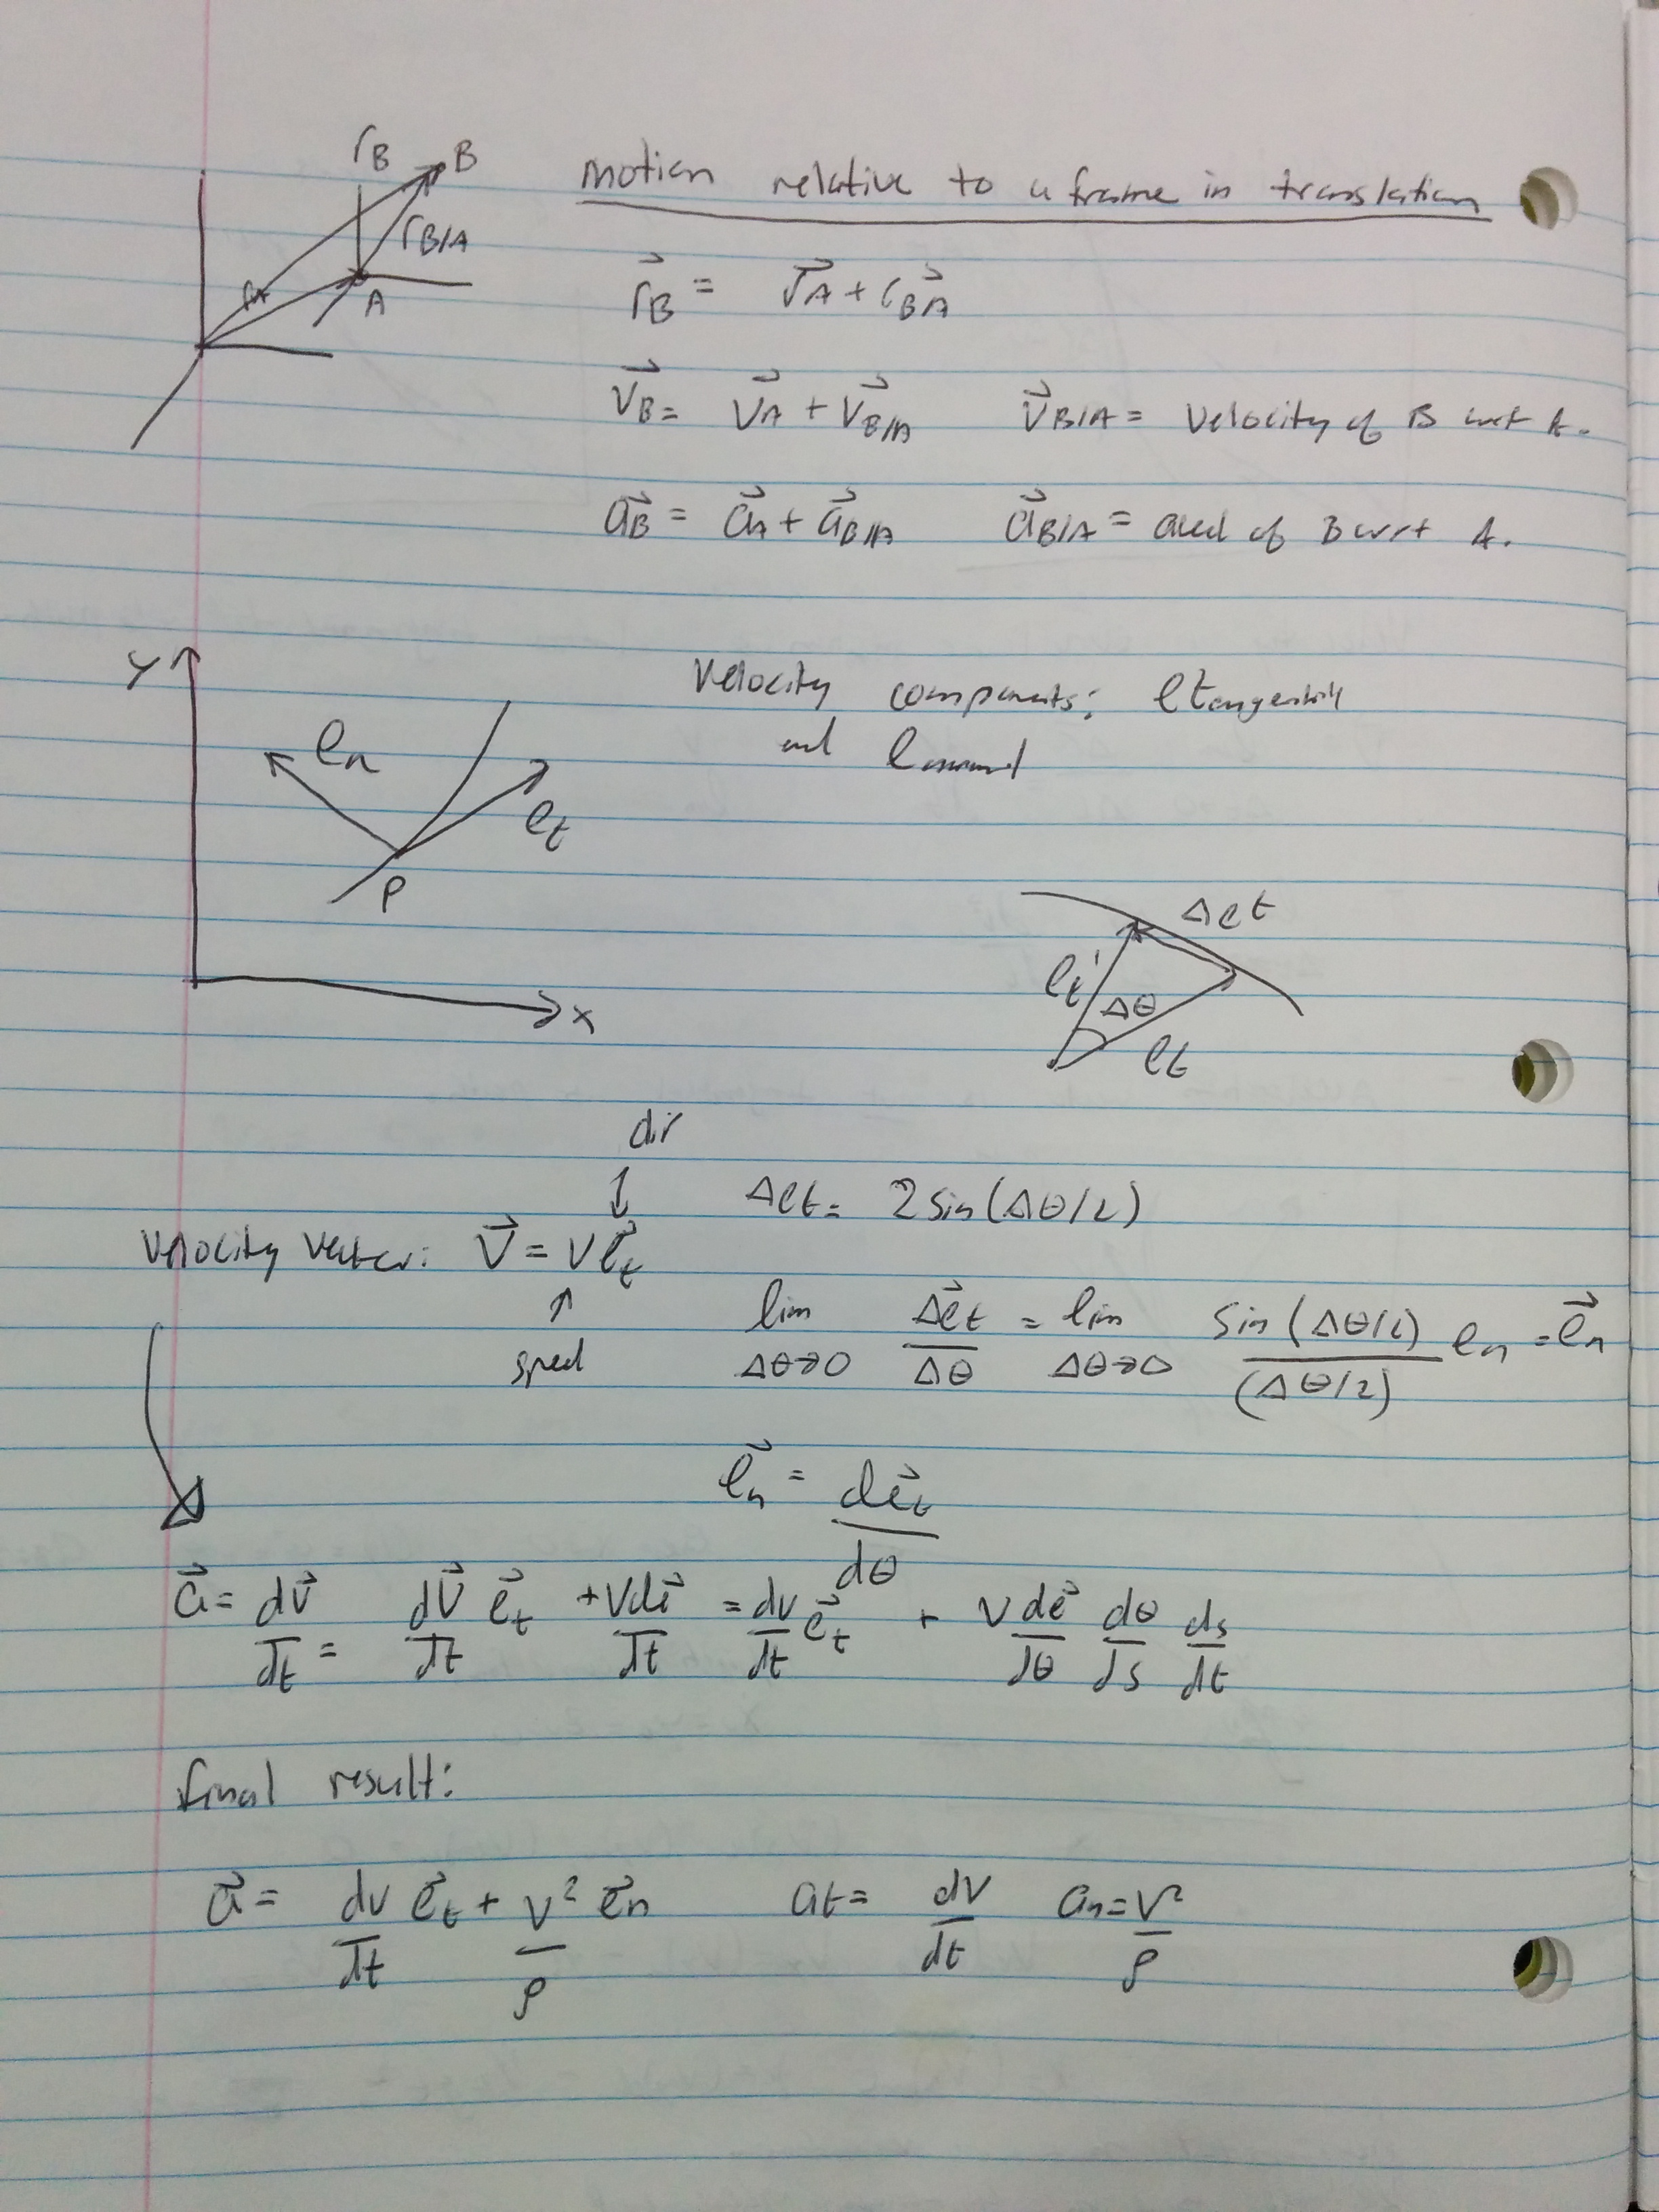 r_B B
r_B/A
r_A
A
Motion relative to a frame in translation
r⃗_B = r⃗_A + r⃗_B/A
v⃗_B = v⃗_A + v⃗_B/A v⃗_B/A = velocity of B wrt A.
a⃗_B = a⃗_A + a⃗_B/A a⃗_B/A = accel of B wrt A.
y
e_n
e_t
P
x
Velocity components: e_tangential
and e_normal
Δe_t
e_t'
Δθ
e_t
dir
↓
Δe_t = 2 sin(Δθ/2)
Velocity vector: v⃗ = v e⃗_t
↑
speed
lim Δθ→0 Δe⃗_t/Δθ = lim Δθ→0 sin(Δθ/2)/(Δθ/2) e_n = e⃗_n
e⃗_n = de⃗_t/dθ
a⃗ = dv⃗/dt = dv⃗/dt e⃗_t + v de⃗/dt = dv/dt e⃗_t + v de⃗/dθ dθ/ds ds/dt
final result:
a⃗ = dv/dt e⃗_t + v²/ρ e⃗_n a_t = dv/dt a_n = v²/ρ